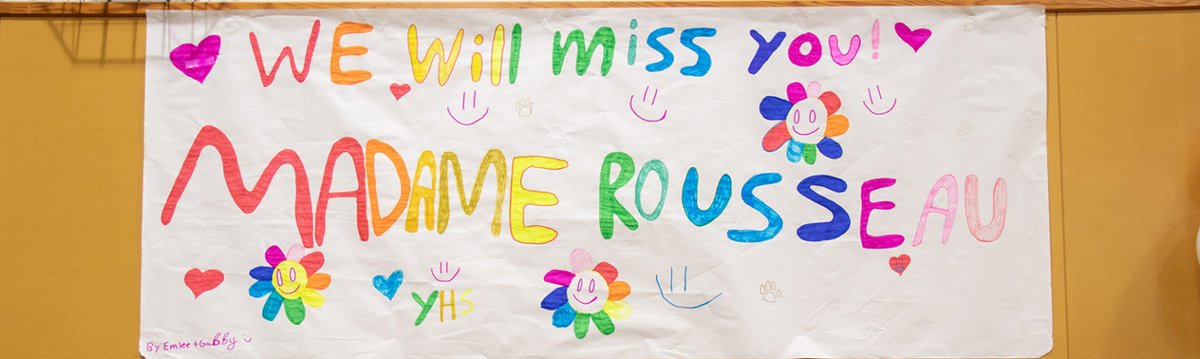 WE Will miss YOU!
MADAME ROUSSEAU
YHS
By: Emlee + Gabby